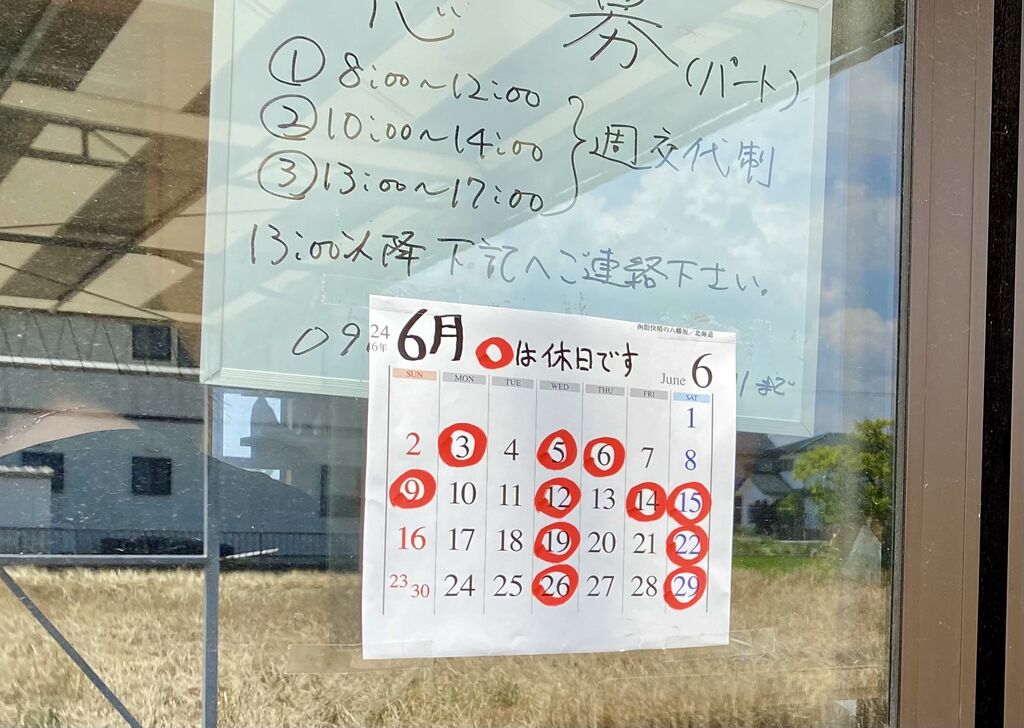 募
(パート)
① 8:00～12:00
② 10:00～14:00
③ 13:00～17:00
週交代制
13:00以降 下記へご連絡下さい。
09
まで
24
6年
6月
は休日です
函館快晴の八幡坂／北海道
June 6
SUN MON TUE WED THU FRI SAT
1
2 3 4 5 6 7 8
9 10 11 12 13 14 15
16 17 18 19 20 21 22
23 30 24 25 26 27 28 29